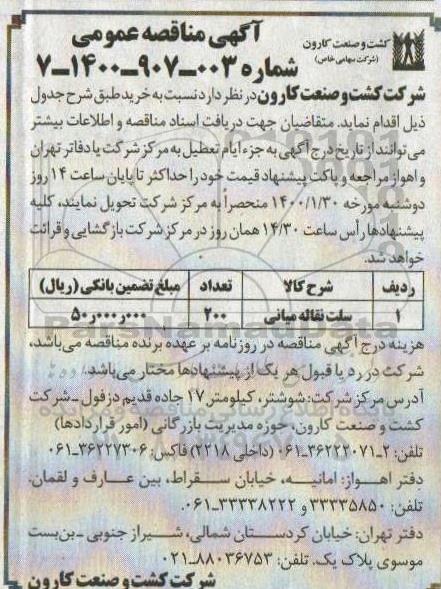 آگهی مناقصه عمومی
شماره ۰۰۳-۹۰۷-۱۴۰۰-۷
کشت و صنعت کارون
(شرکت سهامی خاص)
شرکت کشت و صنعت کارون در نظر دارد نسبت به خرید طبق شرح جدول
ذیل اقدام نماید. متقاضیان جهت دریافت اسناد مناقصه و اطلاعات بیشتر
می‌توانند از تاریخ درج آگهی به جزء ایام تعطیل به مرکز شرکت یا دفاتر تهران
و اهواز مراجعه و پاکت پیشنهاد قیمت خود را حداکثر تا پایان ساعت ۱۴ روز
دوشنبه مورخه ۱۴۰۰/۱/۳۰ منحصراً به مرکز شرکت تحویل نمایند، کلیه
پیشنهادها رأس ساعت ۱۴/۳۰ همان روز در مرکز شرکت بازگشایی و قرائت
خواهد شد.
ردیف شرح کالا تعداد مبلغ تضمین بانکی (ریال)
۱ سلت نقاله میانی ۲۰۰ ۵۰٫۰۰۰٫۰۰۰
هزینه درج آگهی مناقصه در روزنامه بر عهده برنده مناقصه می‌باشد،
شرکت در رد یا قبول هر یک از پیشنهادها مختار می‌باشد.
آدرس مرکز شرکت: شوشتر، کیلومتر ۱۷ جاده قدیم دزفول - شرکت
کشت و صنعت کارون، حوزه مدیریت بازرگانی (امور قراردادها)
تلفن: ۲-۳۶۲۲۲۰۷۱-۰۶۱ (داخلی ۲۲۱۸) فاکس: ۳۶۲۲۷۳۰۶-۰۶۱
دفتر اهواز: امانیه، خیابان سقراط، بین عارف و لقمان.
تلفن: ۳۳۳۳۵۸۵۰ و ۳۳۳۳۸۲۲۲-۰۶۱
دفتر تهران: خیابان کردستان شمالی، شیراز جنوبی - بن‌بست
موسوی پلاک یک. تلفن: ۸۸۰۳۶۷۵۳-۰۲۱
شرکت کشت و صنعت کارون
ParsNamadData